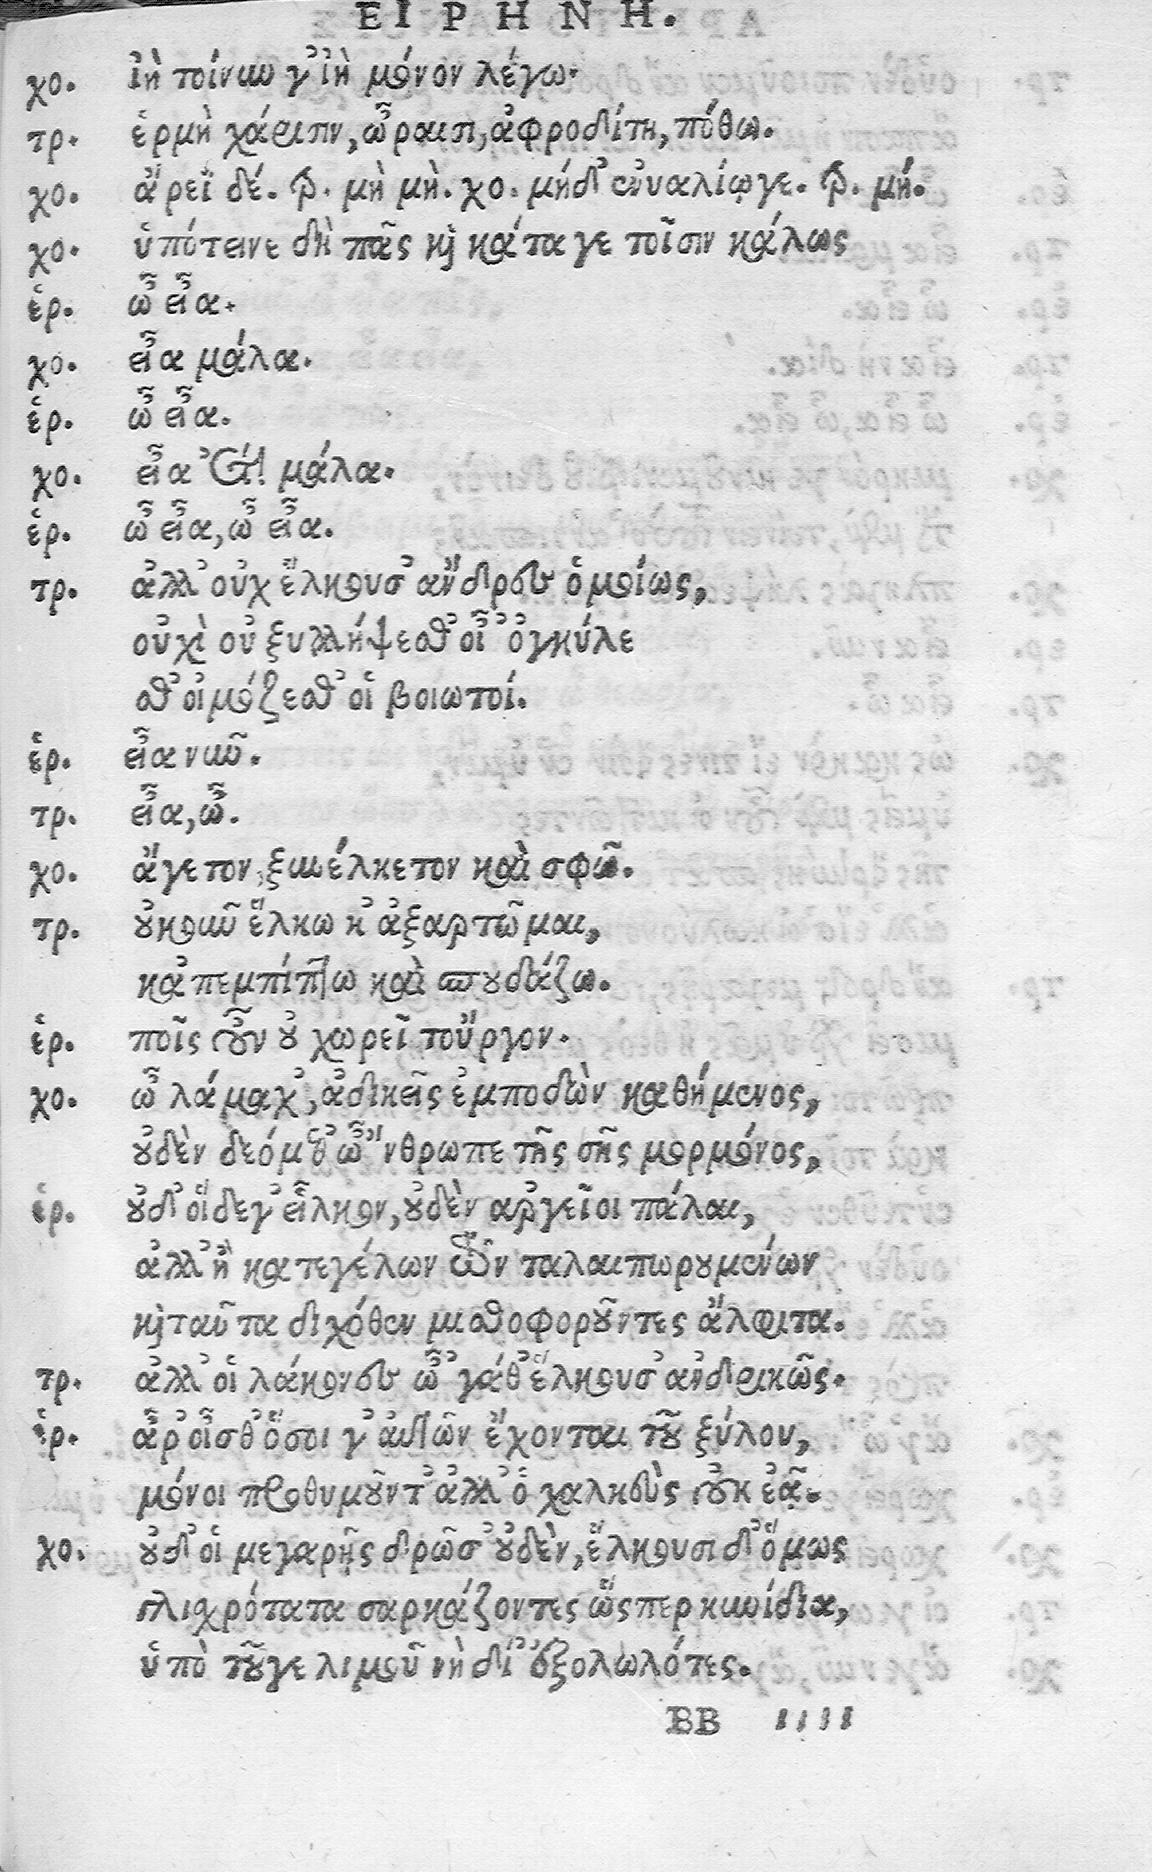 ΕΙΡΗΝΗ.
χο. ἰὴ τοίνυν γ' ἰὴ μόνον λέγω.
τρ. ἑρμῆ χάρισιν, ὥραισι, ἀφροδίτη, πόθω.
χο. ἄρεϊ δέ. τρ. μὴ μή. χο. μήδ' ἐνυαλίῳγε. τρ. μή.
χο. ὑπότεινε δὴ πᾶς καὶ κάταγε τοῖσιν κάλως
ἑρ. ὦ εἶα.
χο. εἶα μάλα.
ἑρ. ὦ εἶα.
χο. εἶα ἔτι μάλα.
ἑρ. ὦ εἶα, ὦ εἶα.
τρ. ἀλλ' οὐχ ἕλκουσ' ἄνδρες ὁμοίως,
οὐχὶ οὐ ξυλλήψεσθ' οἷ' ὀγκύλε
σθ' οἰμώξεσθ' οἱ βοιωτοί.
ἑρ. εἶα νῦν.
τρ. εἶα, ὦ.
χο. ἄγετον, ξυνέλκετον καὶ σφώ.
τρ. οὐκοῦν ἕλκω κ' ἀξαρτῶμαι,
κἀπεμπίπτω καὶ σπουδάζω.
ἑρ. ποῖς οὖν οὐ χωρεῖ τοὖργον.
χο. ὦ λάμαχ', ἀδικεῖς ἐμποδὼν καθήμενος,
οὐδὲν δεόμεθ' ὦ 'νθρωπε τῆς σῆς μορμόνος,
ἑρ. οὐδ' οἵδεγ' εἷλκον, οὐδὲν ἀργεῖοι πάλαι,
ἀλλ' ἢ κατεγέλων τῶν ταλαιπωρουμένων
καὶ ταῦτα διχόθεν μισθοφοροῦντες ἄλφιτα.
τρ. ἀλλ' οἱ λάκωνες ὦ 'γάθ' ἕλκουσ' ἀνδρικῶς.
ἑρ. ἆρ' οἶσθ' ὅσοι γ' αὐτῶν ἔχονται τοῦ ξύλου,
μόνοι προθυμοῦντ' ἀλλ' ὁ χαλκεὺς οὐκ ἐᾷ.
χο. οὐδ' οἱ μεγαρῆς δρῶσ' οὐδὲν, ἕλκουσι δ' ὅμως
γλισχρότατα σαρκάζοντες ὥσπερ κυνίδια,
ὑπὸ τοῦγε λιμοῦ νὴ δί' ἐξολωλότες.
BB ιιιι